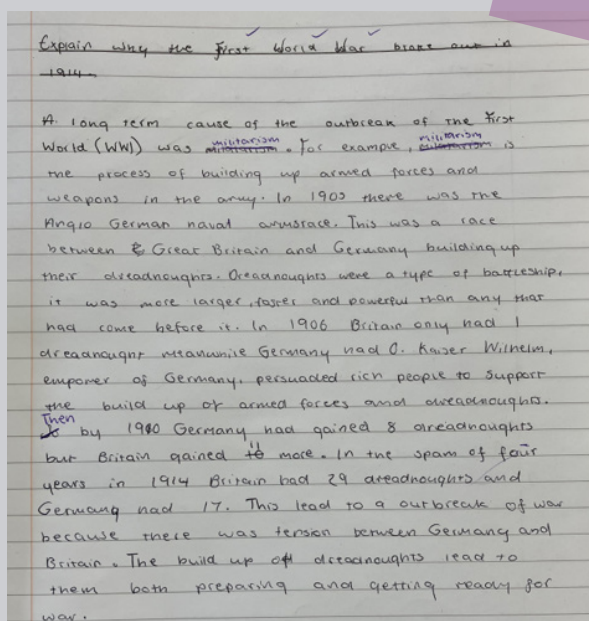 Explain why the first World War broke out in
1914.
A long term cause of the outbreak of the first
World (WWI) was militarism. For example, militarism is
the process of building up armed forces and
weapons in the army. In 1905 there was the
Anglo German naval armsrace. This was a race
between Great Britain and Germany building up
their dreadnoughts. Dreadnoughts were a type of battleship,
it was more larger, faster and powerful than any that
had come before it. In 1906 Britain only had 1
dreadnought meanwhile Germany had 0. Kaiser Wilhelm,
emporer of Germany, persuaded rich people to support
the build up of armed forces and dreadnoughts.
Then by 1910 Germany had gained 8 dreadnoughts
but Britain gained 11 more. In the spam of four
years in 1914 Britain had 29 dreadnoughts and
Germany had 17. This lead to a outbreak of war
because there was tension between Germany and
Britain. The build up of dreadnoughts lead to
them both preparing and getting ready for
war.